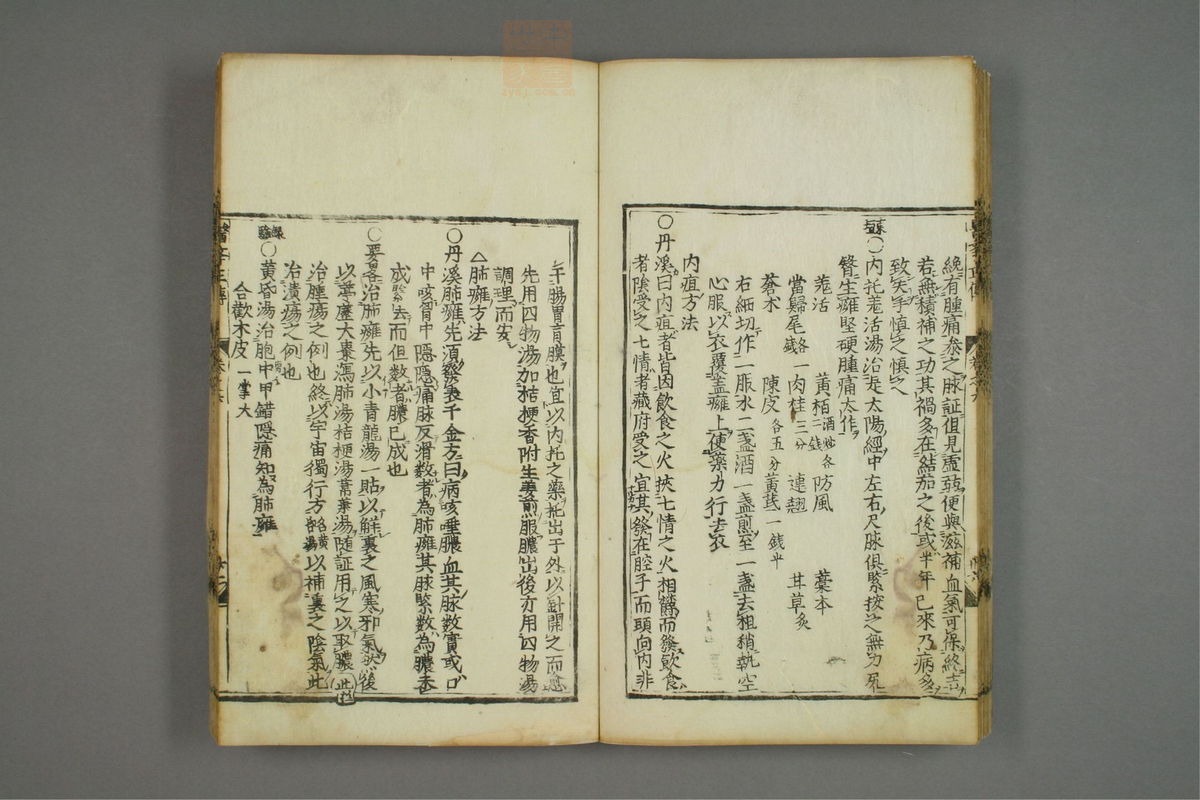 纔有腫痛參之脉証但見虛弱便與滋補血氣可保終吉
若無積補之功其禍多在結痂之後或半年已來乃病多
致失手慎之慎之
○內托羗活湯治足太陽經中左右尺脉俱緊按之無力尻
臀生癰堅硬腫痛大作
羗活 黃栢酒炒各二錢 防風 藁本
當歸尾各一錢 肉桂三分 連翹 甘草炙
蒼术 陳皮各五分 黃芪一錢半
右細切作一服水二盞酒一盞煎至一盞去粗稍熱空
心服以衣覆蓋癰上使藥力行去衣
內疽方法
○丹溪曰內疽者皆因飲食之火挾七情之火相鬱而發飲食
者陰受之七情者藏府受之宜其發在腔子而頭向內非
干腸胃肓膜也宜以內托之藥托出于外以針開之而愈
先用四物湯加桔梗香附生姜煎服膿出後方用四物湯
調理而安
△肺癰方法
○丹溪肺癰先須發表千金方曰病咳唾膿血其脉數實或口
中咳胷中隱隱痛脉反滑數者為肺癰其脉緊數為膿未
成緊去而但數者膿已成也
○要畧治肺癰先以小青龍湯一貼以解裏之風寒邪氣然後
以葶藶大棗瀉肺湯桔梗湯葦莖湯隨証用之以取膿此
治腫瘍之例也終以宇宙獨行方以補裏之陰氣此
治潰瘍之例也
○黃昏湯治胞中甲錯隱痛知為肺癰
合歡木皮一掌大